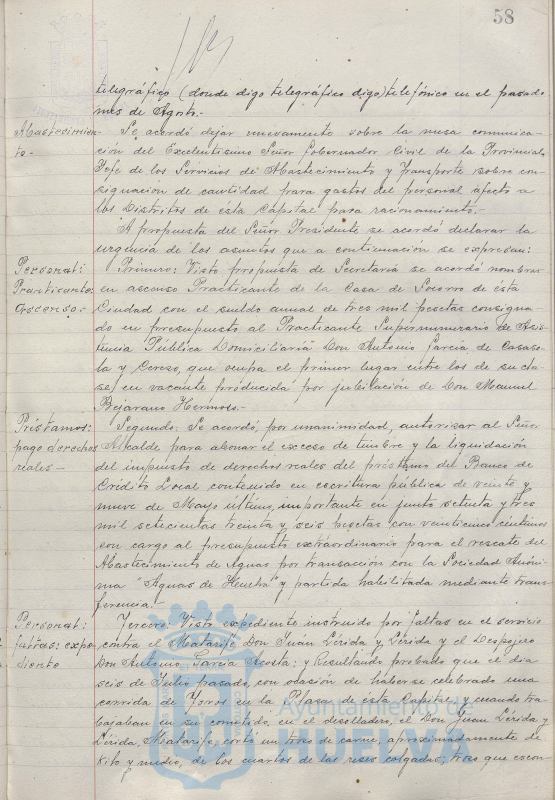 58
telegráfico (donde digo telegráfico digo) telefónico en el pasado
mes de Agosto.-
Abastecimien-
to.-
Se acordó dejar nuevamente sobre la mesa comunica-
ción del Excelentísimo Señor Gobernador Civil de la Provincial
Jefe de los Servicios de Abastecimiento y Transporte sobre con-
signación de cantidad para gastos del personal afecto a
los Distritos de ésta Capital para racionamiento.-
A propuesta del Señor Presidente se acordó declarar la
urgencia de los asuntos que a continuación se expresan:
Personal:
Practicante:
Ascenso.-
Primero: Visto propuesta de Secretaria se acordó nombrar
en ascenso Practicante de la Casa de Socorro de ésta
Ciudad con el sueldo anual de tres mil pesetas consigna-
do en presupuesto al Practicante Supernumerario de Asis-
tencia Pública Domiciliaria Don Antonio Garcia de Casaso-
la y Cerezo, que ocupa el primer lugar entre los de su cla-
se, en vacante producida por jubilación de Don Manuel
Bejarano Hermoso.-
Préstamos:
pago derechos
reales.-
Segundo: Se acordó, por unanimidad, autorizar al Señor
Alcalde para abonar el exceso de timbre y la liquidación
del impuesto de derechos reales del préstamo del Banco de
Crédito Local contenido en escritura pública de veinte y
nueve de Mayo último, importante en junto setenta y tres
mil setecientas treinta y seis pesetas con veinticinco centimos
con cargo al presupuesto extraordinario para el rescate del
Abastecimiento de Aguas por transacción con la Sociedad Anóni-
ma "Aguas de Huelva" y partida habilitada mediante trans-
ferencia.-
Personal:
faltas: expe-
diente
Tercero: Visto expediente instruido por faltas en el servicio
contra el Matarife Don Juán Lérida y Lérida y el Despojero
Don Antonio Garcia Acosta: y Resultando probado que el dia
seis de Julio pasado, con ocasión de haberse celebrado una
corrida de Toros en la Plaza de esta Capital y cuando tra-
bajaban en su cometido, en el desolladero, el Don Juan Lérida y
Lérida, Matarife, cortó un trozo de carne, aproximadamente de
kilo y medio, de los cuartos de las reses colgadas; trozo que escon-
Ayuntamiento de
HUELVA